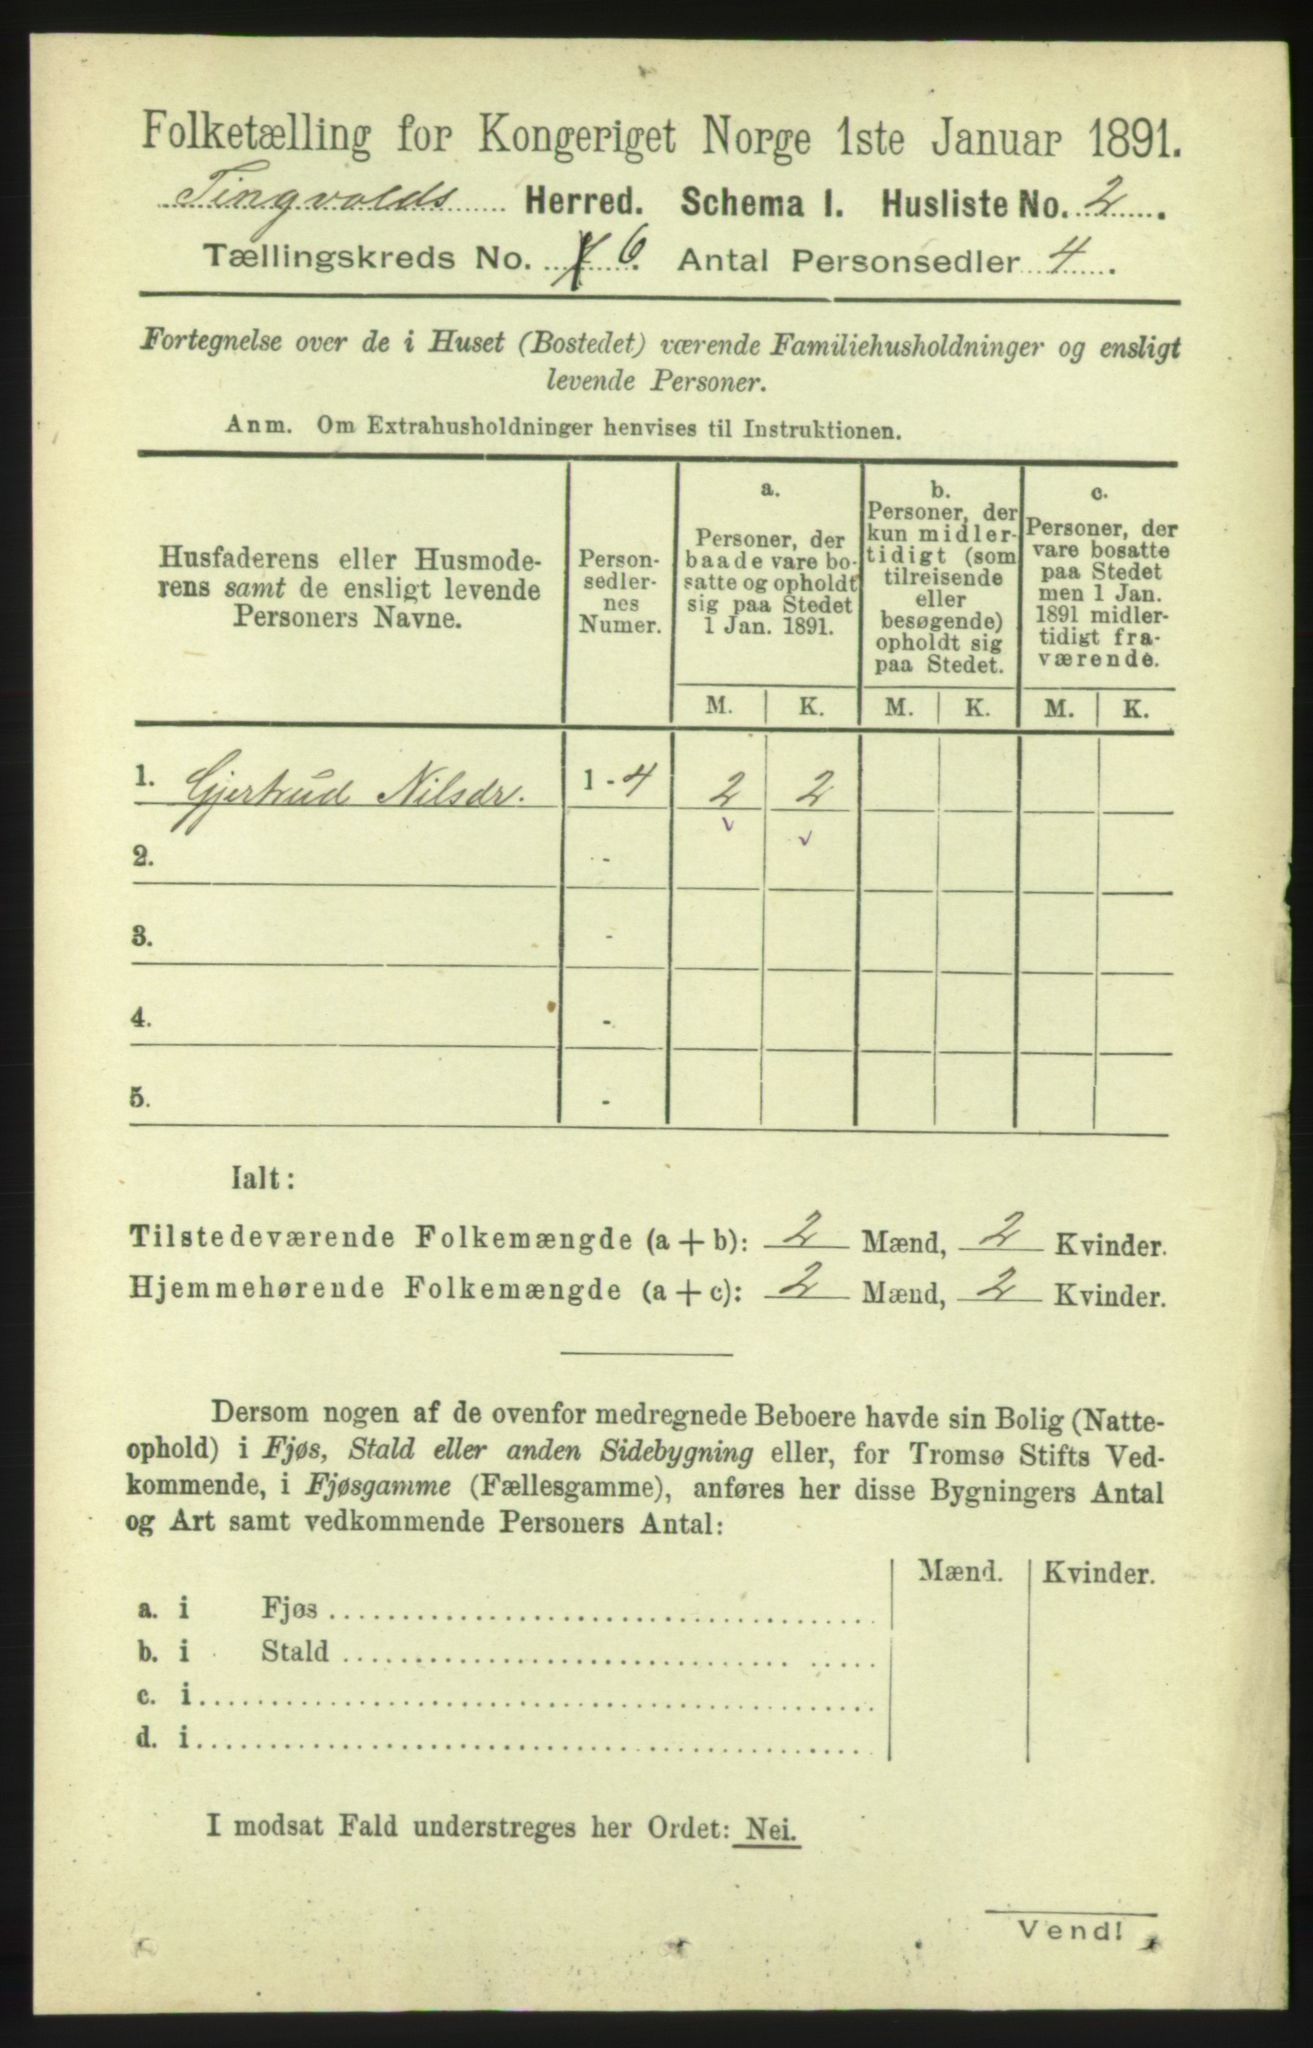 Folketælling for Kongeriget Norge 1ste Januar 1891.
Tingvolds Herred. Schema 1. Husliste No. 2.
Tællingskreds No. 6. Antal Personsedler 4.
Fortegnelse over de i Huset (Bostedet) værende Familiehusholdninger og ensligt
levende Personer.
Anm. Om Extrahusholdninger henvises til Instruktionen.
Husfaderens eller Husmode-
rens samt de ensligt levende
Personers Navne.
Person-
sedler-
nes
Numer.
a.
Personer, der
baade vare bo-
satte og opholdt
sig paa Stedet
1 Jan. 1891.
b.
Personer, der
kun midler-
tidigt (som
tilreisende
eller
besøgende)
opholdt sig
paa Stedet.
c.
Personer, der
vare bosatte
paa Stedet
men 1 Jan.
1891 midler-
tidigt fra-
værende.
M. K. M. K. M. K.
1. Gjertrud Nilsdr. 1 - 4 2 2
2. -
3. -
4. -
5. -
Ialt:
Tilstedeværende Folkemængde (a + b): 2 Mænd, 2 Kvinder.
Hjemmehørende Folkemængde (a + c): 2 Mænd, 2 Kvinder.
Dersom nogen af de ovenfor medregnede Beboere havde sin Bolig (Natte-
ophold) i Fjøs, Stald eller anden Sidebygning eller, for Tromsø Stifts Ved-
kommende, i Fjøsgamme (Fællesgamme), anføres her disse Bygningers Antal
og Art samt vedkommende Personers Antal:
Mænd. Kvinder.
a. i Fjøs
b. i Stald
c. i
d. i
I modsat Fald understreges her Ordet: Nei.
Vend!